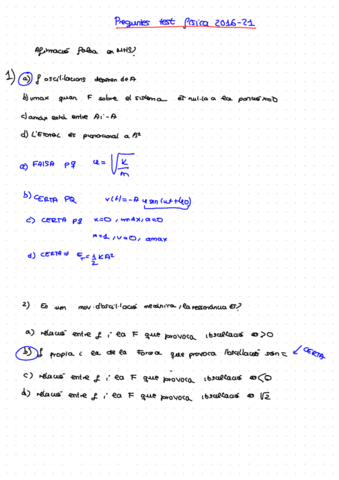 Preguntes test física 2016-21
Afirmació falsa en MHS?
1) a) f oscil·lacions depenen de A
b) vmax quan F sobre el sistema és nul·la a la posició 0
c) amax està entre A i -A
d) L'Etotal és proporcional a A²
a) FALSA pq ω = √K/m
b) CERTA PQ v(t) = -A ω sen(ωt+φ0)
c) CERTA PQ x=0, vmax, a=0
x=1, v=0, amax
d) CERTA Et = 1/2 KA²
2) En un mov. d'oscil·lació mecànica, la ressonància és?
a) relació entre f i la F que provoca oscil·lació és >0
b) f pròpia i la de la Forma que provoca l'oscil·lació són = CERTA
c) relació entre f i la F que provoca oscil·lació és <0
d) relació entre f i la F que provoca oscil·lació és √2